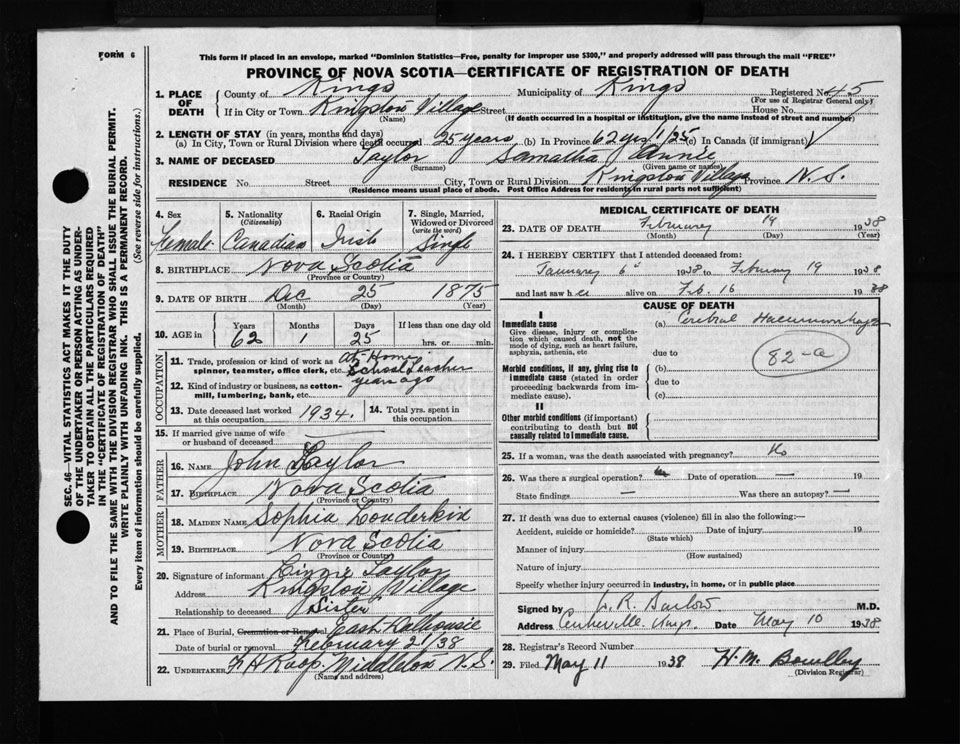 FORM 6
This form if placed in an envelope, marked "Dominion Statistics—Free, penalty for improper use $300," and properly addressed will pass through the mail "FREE"
PROVINCE OF NOVA SCOTIA—CERTIFICATE OF REGISTRATION OF DEATH
SEC. 46—VITAL STATISTICS ACT MAKES IT THE DUTY
OF THE UNDERTAKER OR PERSON ACTING AS UNDER-
TAKER TO OBTAIN ALL THE PARTICULARS REQUIRED
IN THE "CERTIFICATE OF REGISTRATION OF DEATH"
AND TO FILE THE SAME WITH THE DIVISION REGISTRAR WHO SHALL ISSUE THE BURIAL PERMIT.
WRITE PLAINLY WITH UNFADING INK. THIS IS A PERMANENT RECORD.
Every item of information should be carefully supplied. (See reverse side for instructions.)
1. PLACE OF DEATH County of Kings Municipality of Kings Registered No. 45
(For use of Registrar General only)
If in City or Town Kingston Village Street House No.
(Name) (If death occurred in a hospital or institution, give the name instead of street and number)
2. LENGTH OF STAY (in years, months and days)
(a) In City, Town or Rural Division where death occurred 25 years (b) In Province 62 yrs/1/25 (c) In Canada (if immigrant)
3. NAME OF DECEASED Taylor Samatha Annie
(Surname) (Given name or names)
RESIDENCE No. Street City, Town or Rural Division Kingston Village Province N.S.
(Residence means usual place of abode. Post Office Address for residents in rural parts not sufficient)
4. Sex Female
5. Nationality (Citizenship) Canadian
6. Racial Origin Irish
7. Single, Married, Widowed or Divorced (write the word) Single
8. BIRTHPLACE Nova Scotia
(Province or Country)
9. DATE OF BIRTH Dec 25 1875
(Month) (Day) (Year)
10. AGE in Years 62 Months 1 Days 25 If less than one day old hrs. or min.
OCCUPATION
11. Trade, profession or kind of work as spinner, teamster, office clerk, etc. At Home, School Teacher years ago
12. Kind of industry or business, as cotton-mill, lumbering, bank, etc.
13. Date deceased last worked at this occupation 1934.
14. Total yrs. spent in this occupation
15. If married give name of wife or husband of deceased
FATHER
16. NAME John Taylor
17. BIRTHPLACE Nova Scotia
(Province or Country)
MOTHER
18. MAIDEN NAME Sophia
19. BIRTHPLACE Nova Scotia
(Province or Country)
20. Signature of informant Taylor
Address Kingston Village
Relationship to deceased Sister
21. Place of Burial, Cremation or Removal East Dalhousie
Date of burial or removal February 21/38
22. UNDERTAKER Middleton N.S.
(Name and address)
MEDICAL CERTIFICATE OF DEATH
23. DATE OF DEATH February 19 1938
(Month) (Day) (Year)
24. I HEREBY CERTIFY that I attended deceased from:
January 6 1938 to February 19 1938
and last saw her alive on Feb. 16 1938
CAUSE OF DEATH
I
Immediate cause (a) Cerebral Haemorrhage
Give disease, injury or complication which caused death, not the mode of dying, such as heart failure, asphyxia, asthenia, etc
due to
82-a
Morbid conditions, if any, giving rise to immediate cause (stated in order proceeding backwards from immediate cause).
(b)
due to
(c)
II
Other morbid conditions (if important) contributing to death but not causally related to immediate cause.
25. If a woman, was the death associated with pregnancy? No
26. Was there a surgical operation? Date of operation — 19
State findings — Was there an autopsy? —
27. If death was due to external causes (violence) fill in also the following:—
Accident, suicide or homicide? Date of injury 19
(State which)
Manner of injury
(How sustained)
Nature of injury
Specify whether injury occurred in industry, in home, or in public place
Signed by Barlow M.D.
Address Date May 10 1938
28. Registrar's Record Number
29. Filed May 11 1938 H.M.
(Division Registrar)